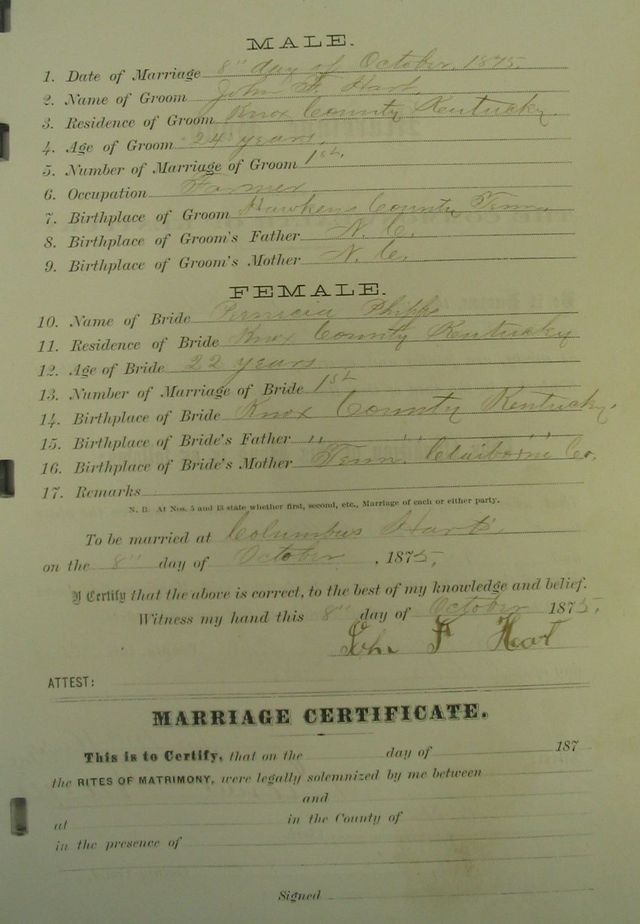 MALE.
1. Date of Marriage 8" day of October, 1875.
2. Name of Groom John F. Hart
3. Residence of Groom Knox County Kentucky.
4. Age of Groom 24 years.
5. Number of Marriage of Groom 1st.
6. Occupation Farmer
7. Birthplace of Groom Hawkens County Tenn.
8. Birthplace of Groom's Father N. C.
9. Birthplace of Groom's Mother N. C.
FEMALE.
10. Name of Bride Phipps
11. Residence of Bride Knox County Kentucky
12. Age of Bride 22 years
13. Number of Marriage of Bride 1st
14. Birthplace of Bride Knox County Kentucky.
15. Birthplace of Bride's Father " " "
16. Birthplace of Bride's Mother Tenn. Claiborne Co.
17. Remarks
N. B. At Nos. 5 and 13 state whether first, second, etc., Marriage of each or either party.
To be married at Columbus Hart's
on the 8" day of October, 1875,
I Certify that the above is correct, to the best of my knowledge and belief.
Witness my hand this 8" day of October 1875.
John F Hart
ATTEST:
MARRIAGE CERTIFICATE.
This is to Certify, that on the day of 187
the RITES OF MATRIMONY, were legally solemnized by me between
and
at in the County of
in the presence of
Signed